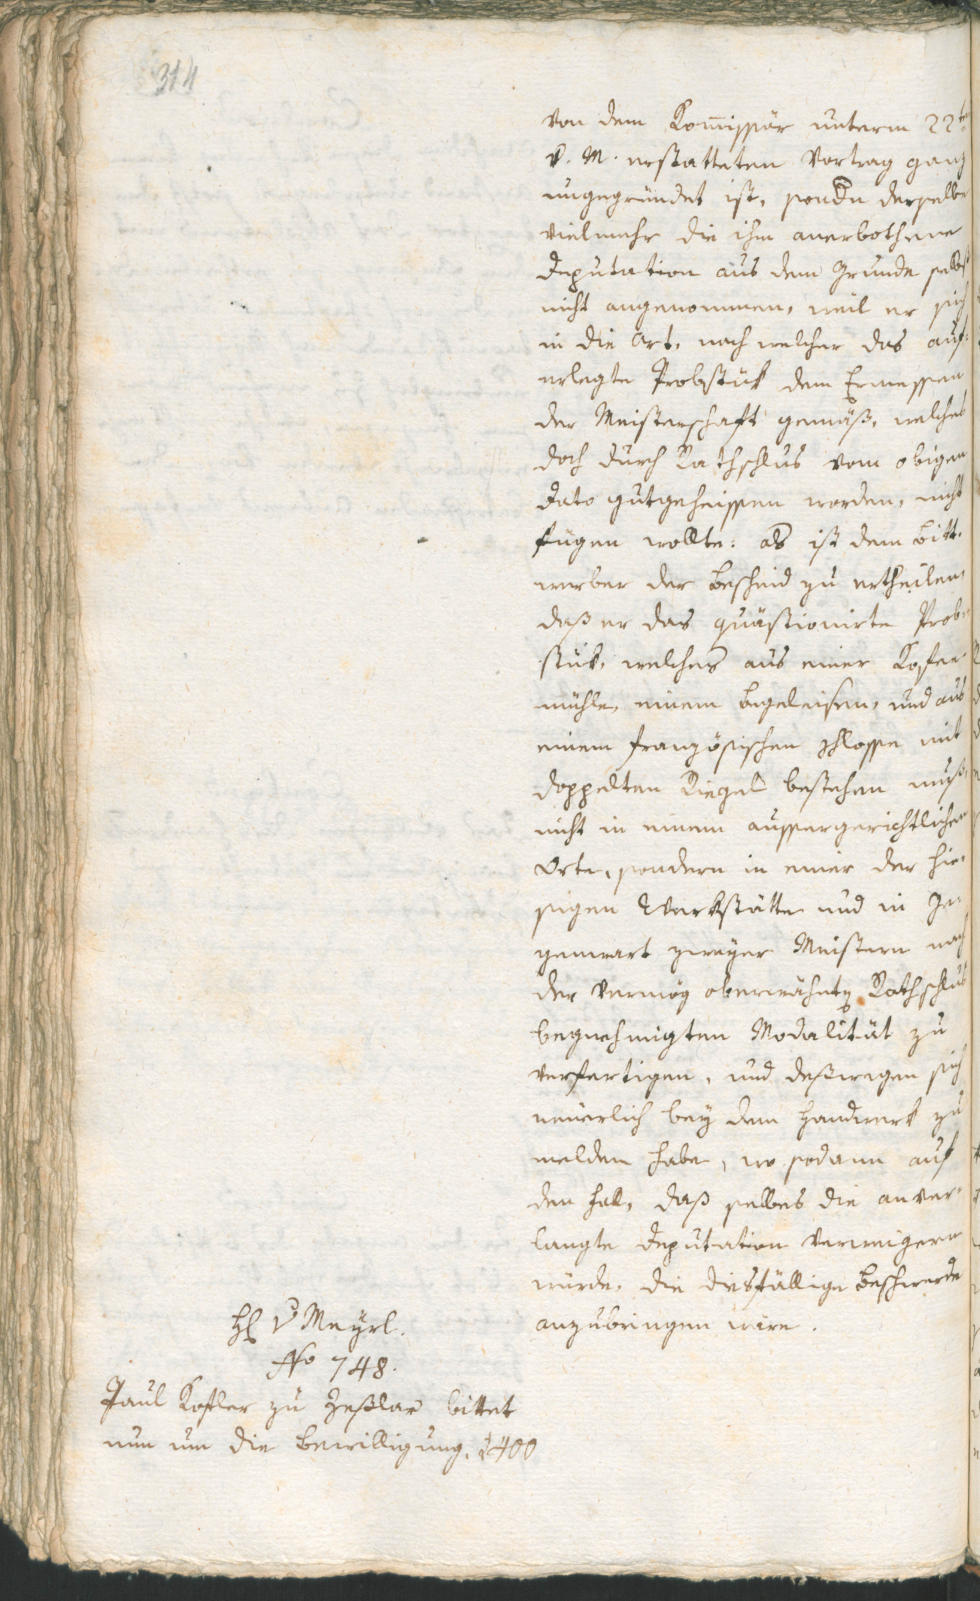 314
von dem Kom̄issär unterm 22ten
v. M. erstatteten Vortrag ganz
ungegründet ist, sondn derselbe
vielmehr die ihm anerbothene
Deputation aus dem Grunde selbst
nicht angenommen, weil er sich
in die Art, nach welcher das auf-
erlegte Probstük dem Ermessen
der Meisterschaft gemäß, welches
doch durch Rathschlus vom obigen
Dato gutgeheissen worden, nicht
fügen wollte: als ist dem Bitt-
werber der Bescheid zu ertheilen,
daß er das quästionirte Prob-
stük, welches aus einer Kofee-
mühle, einem Begeleisen, und aus
einem französischen Schlosse mit
doppelten Riegel bestehen muß,
nicht in einem aussergerichtlichen
Orte, sondern in einer der hie-
sigen Werkstätte und in Ge-
genwart zweyer Meistern nach
der vermög oberwähntem Rathschlus
begnehmigten Modalität zu
verfertigen, und deßwegen sich
neuerlich bey dem Handwerk zu
melden habe, wo sodann auf
den Fall, daß selbes die anver-
langte Deputation verweigern
würde, die diesfällige Beschwerde
anzubringen wäre.
H v Mayrl.
No 748.
Paul Kofler zu Zeßlar bittet
nun um die Bewilligung, 1400